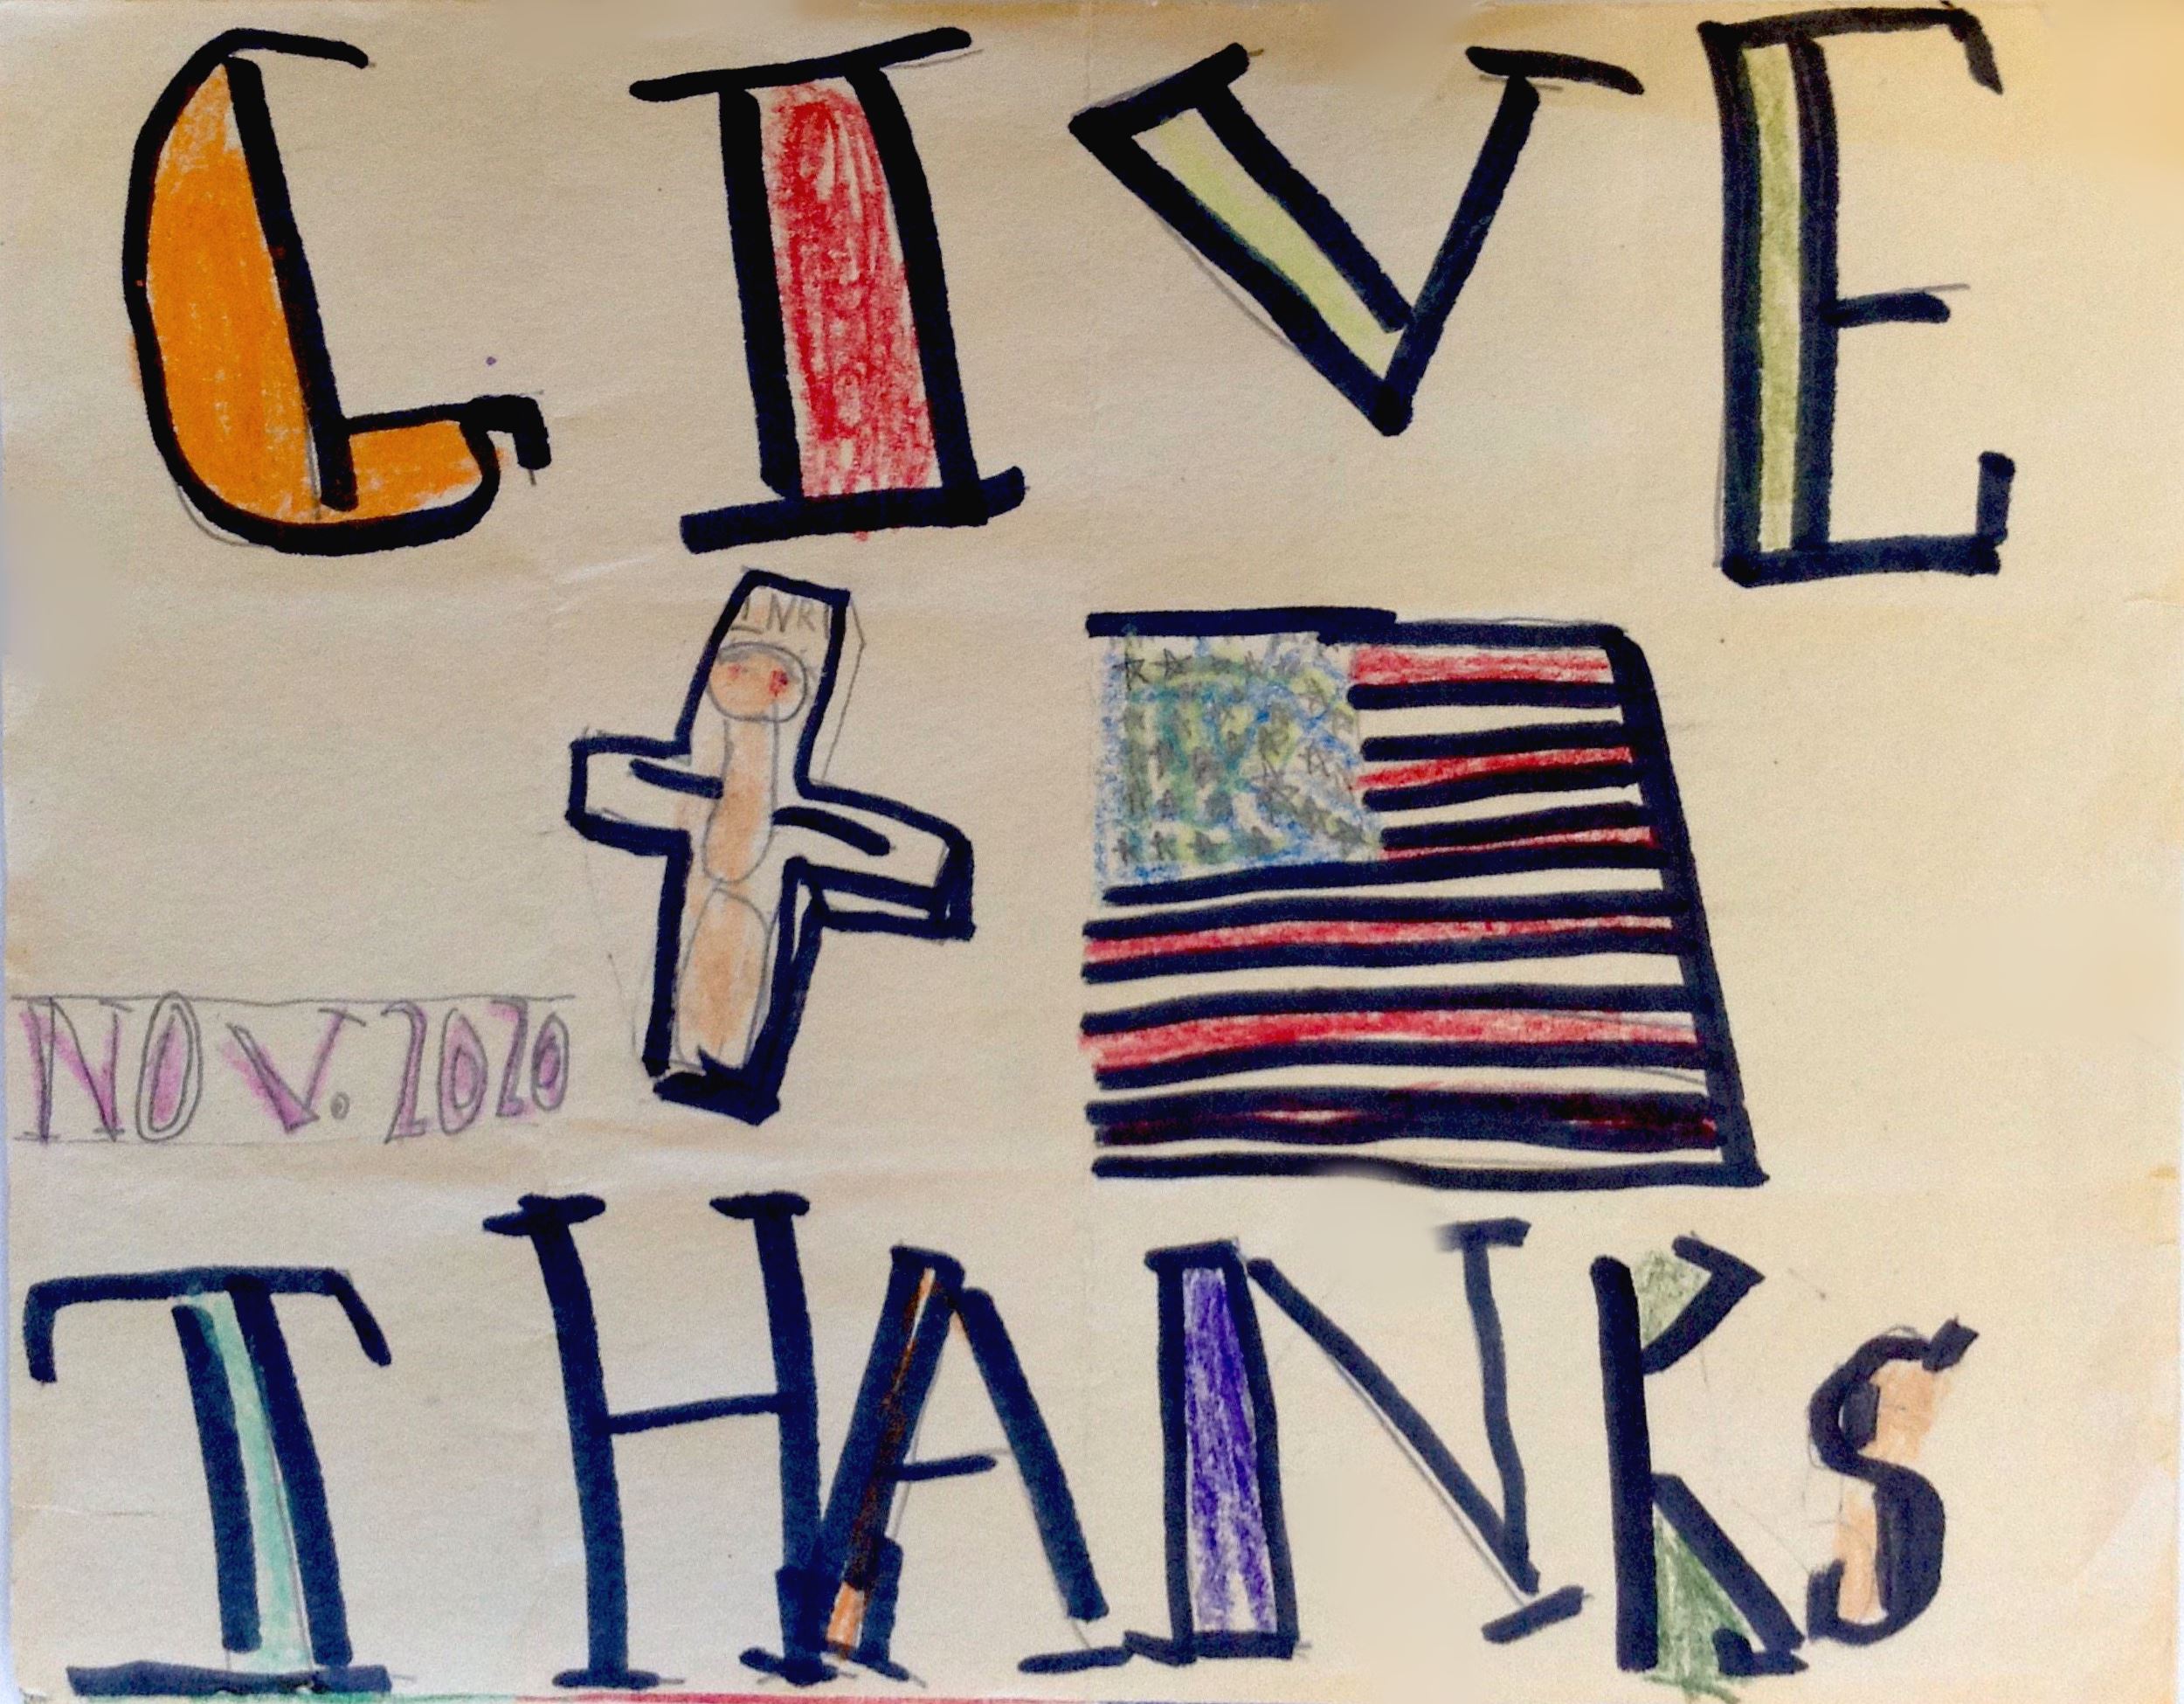 LIVE
INRI
NOV. 2020
THANKS